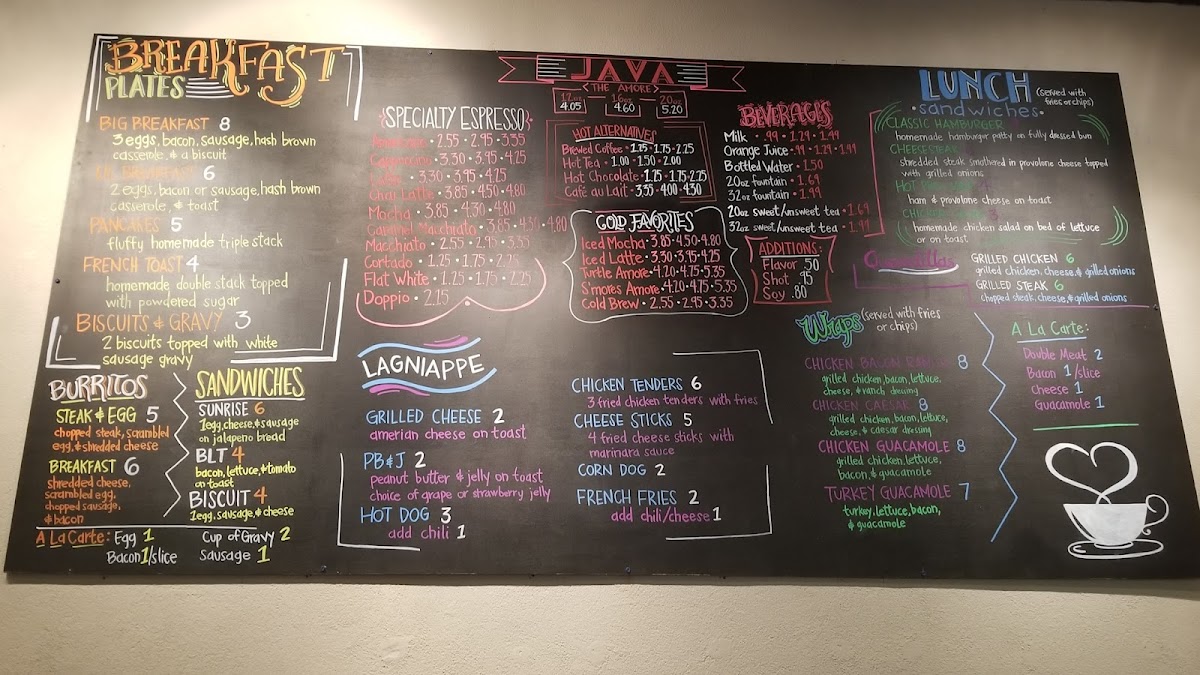 BREAKFAST
PLATES
BIG BREAKFAST 8
3 eggs, bacon, sausage, hash brown
casserole, & a biscuit
BREAKFAST 6
2 eggs, bacon or sausage, hash brown
casserole, & toast
PANCAKES 5
fluffy homemade triple stack
FRENCH TOAST 4
homemade double stack topped
with powdered sugar
BISCUITS & GRAVY 3
2 biscuits topped with white
sausage gravy
BURRITOS
STEAK & EGG 5
chopped steak, scrambled
egg, & shredded cheese
BREAKFAST 6
shredded cheese,
scrambled egg,
chopped sausage,
& bacon
SANDWICHES
SUNRISE 6
1 egg, cheese, & sausage
on jalapeno bread
BLT 4
bacon, lettuce, & tomato
on toast
BISCUIT 4
1 egg, sausage, & cheese
A La Carte: Egg 1
Bacon 1/slice
Cup of Gravy 2
Sausage 1
JAVA
< THE AMORE >
12oz 4.05
16oz 4.60
20oz 5.20
SPECIALTY ESPRESSO
Americano • 2.55 • 2.95 • 3.35
Cappuccino • 3.30 • 3.95 • 4.25
Latte • 3.30 • 3.95 • 4.25
Chai Latte • 3.85 • 4.50 • 4.80
Mocha • 3.85 • 4.50 • 4.80
Caramel Macchiato • 3.85 • 4.50 • 4.80
Macchiato • 2.55 • 2.95 • 3.35
Cortado • 1.25 • 1.75 • 2.25
Flat White • 1.25 • 1.75 • 2.25
Doppio • 2.15
HOT ALTERNATIVES
Brewed Coffee • 1.25 • 1.75 • 2.25
Hot Tea • 1.00 • 1.50 • 2.00
Hot Chocolate • 1.25 • 1.75 • 2.25
Café au Lait • 3.55 • 4.00 • 4.30
COLD FAVORITES
Iced Mocha • 3.85 • 4.50 • 4.80
Iced Latte • 3.30 • 3.95 • 4.25
Turtle Amore • 4.20 • 4.75 • 5.35
S'mores Amore • 4.20 • 4.75 • 5.35
Cold Brew • 2.55 • 2.95 • 3.35
BEVERAGES
Milk • .99 • 1.29 • 1.49
Orange Juice • .99 • 1.29 • 1.49
Bottled Water • 1.50
20oz fountain • 1.69
32oz fountain • 1.99
20oz sweet/unsweet tea • 1.69
32oz sweet/unsweet tea • 1.99
ADDITIONS:
Flavor .50
Shot .95
Soy .80
LAGNIAPPE
GRILLED CHEESE 2
amerian cheese on toast
PB&J 2
peanut butter & jelly on toast
choice of grape or strawberry jelly
HOT DOG 3
add chili 1
CHICKEN TENDERS 6
3 fried chicken tenders with fries
CHEESE STICKS 5
4 fried cheese sticks with
marinara sauce
CORN DOG 2
FRENCH FRIES 2
add chili/cheese 1
LUNCH
(served with
fries or chips)
•sandwiches•
CLASSIC HAMBURGER
homemade hamburger patty on fully dressed bun
CHEESESTEAK
shredded steak smothered in provolone cheese topped
with grilled onions
HOT
ham & provolone cheese on toast
CHICKEN
homemade chicken salad on bed of lettuce
or on toast
Quesadillas
GRILLED CHICKEN 6
grilled chicken, cheese, & grilled onions
GRILLED STEAK 6
chopped steak, cheese, & grilled onions
Wraps
(served with fries
or chips)
CHICKEN BACON RANCH 8
grilled chicken, bacon, lettuce,
cheese, & ranch dressing
CHICKEN CAESAR 8
grilled chicken, bacon, lettuce,
cheese, & caesar dressing
CHICKEN GUACAMOLE 8
grilled chicken, lettuce,
bacon, & guacamole
TURKEY GUACAMOLE 7
turkey, lettuce, bacon,
& guacamole
A La Carte:
Double Meat 2
Bacon 1/slice
Cheese 1
Guacamole 1